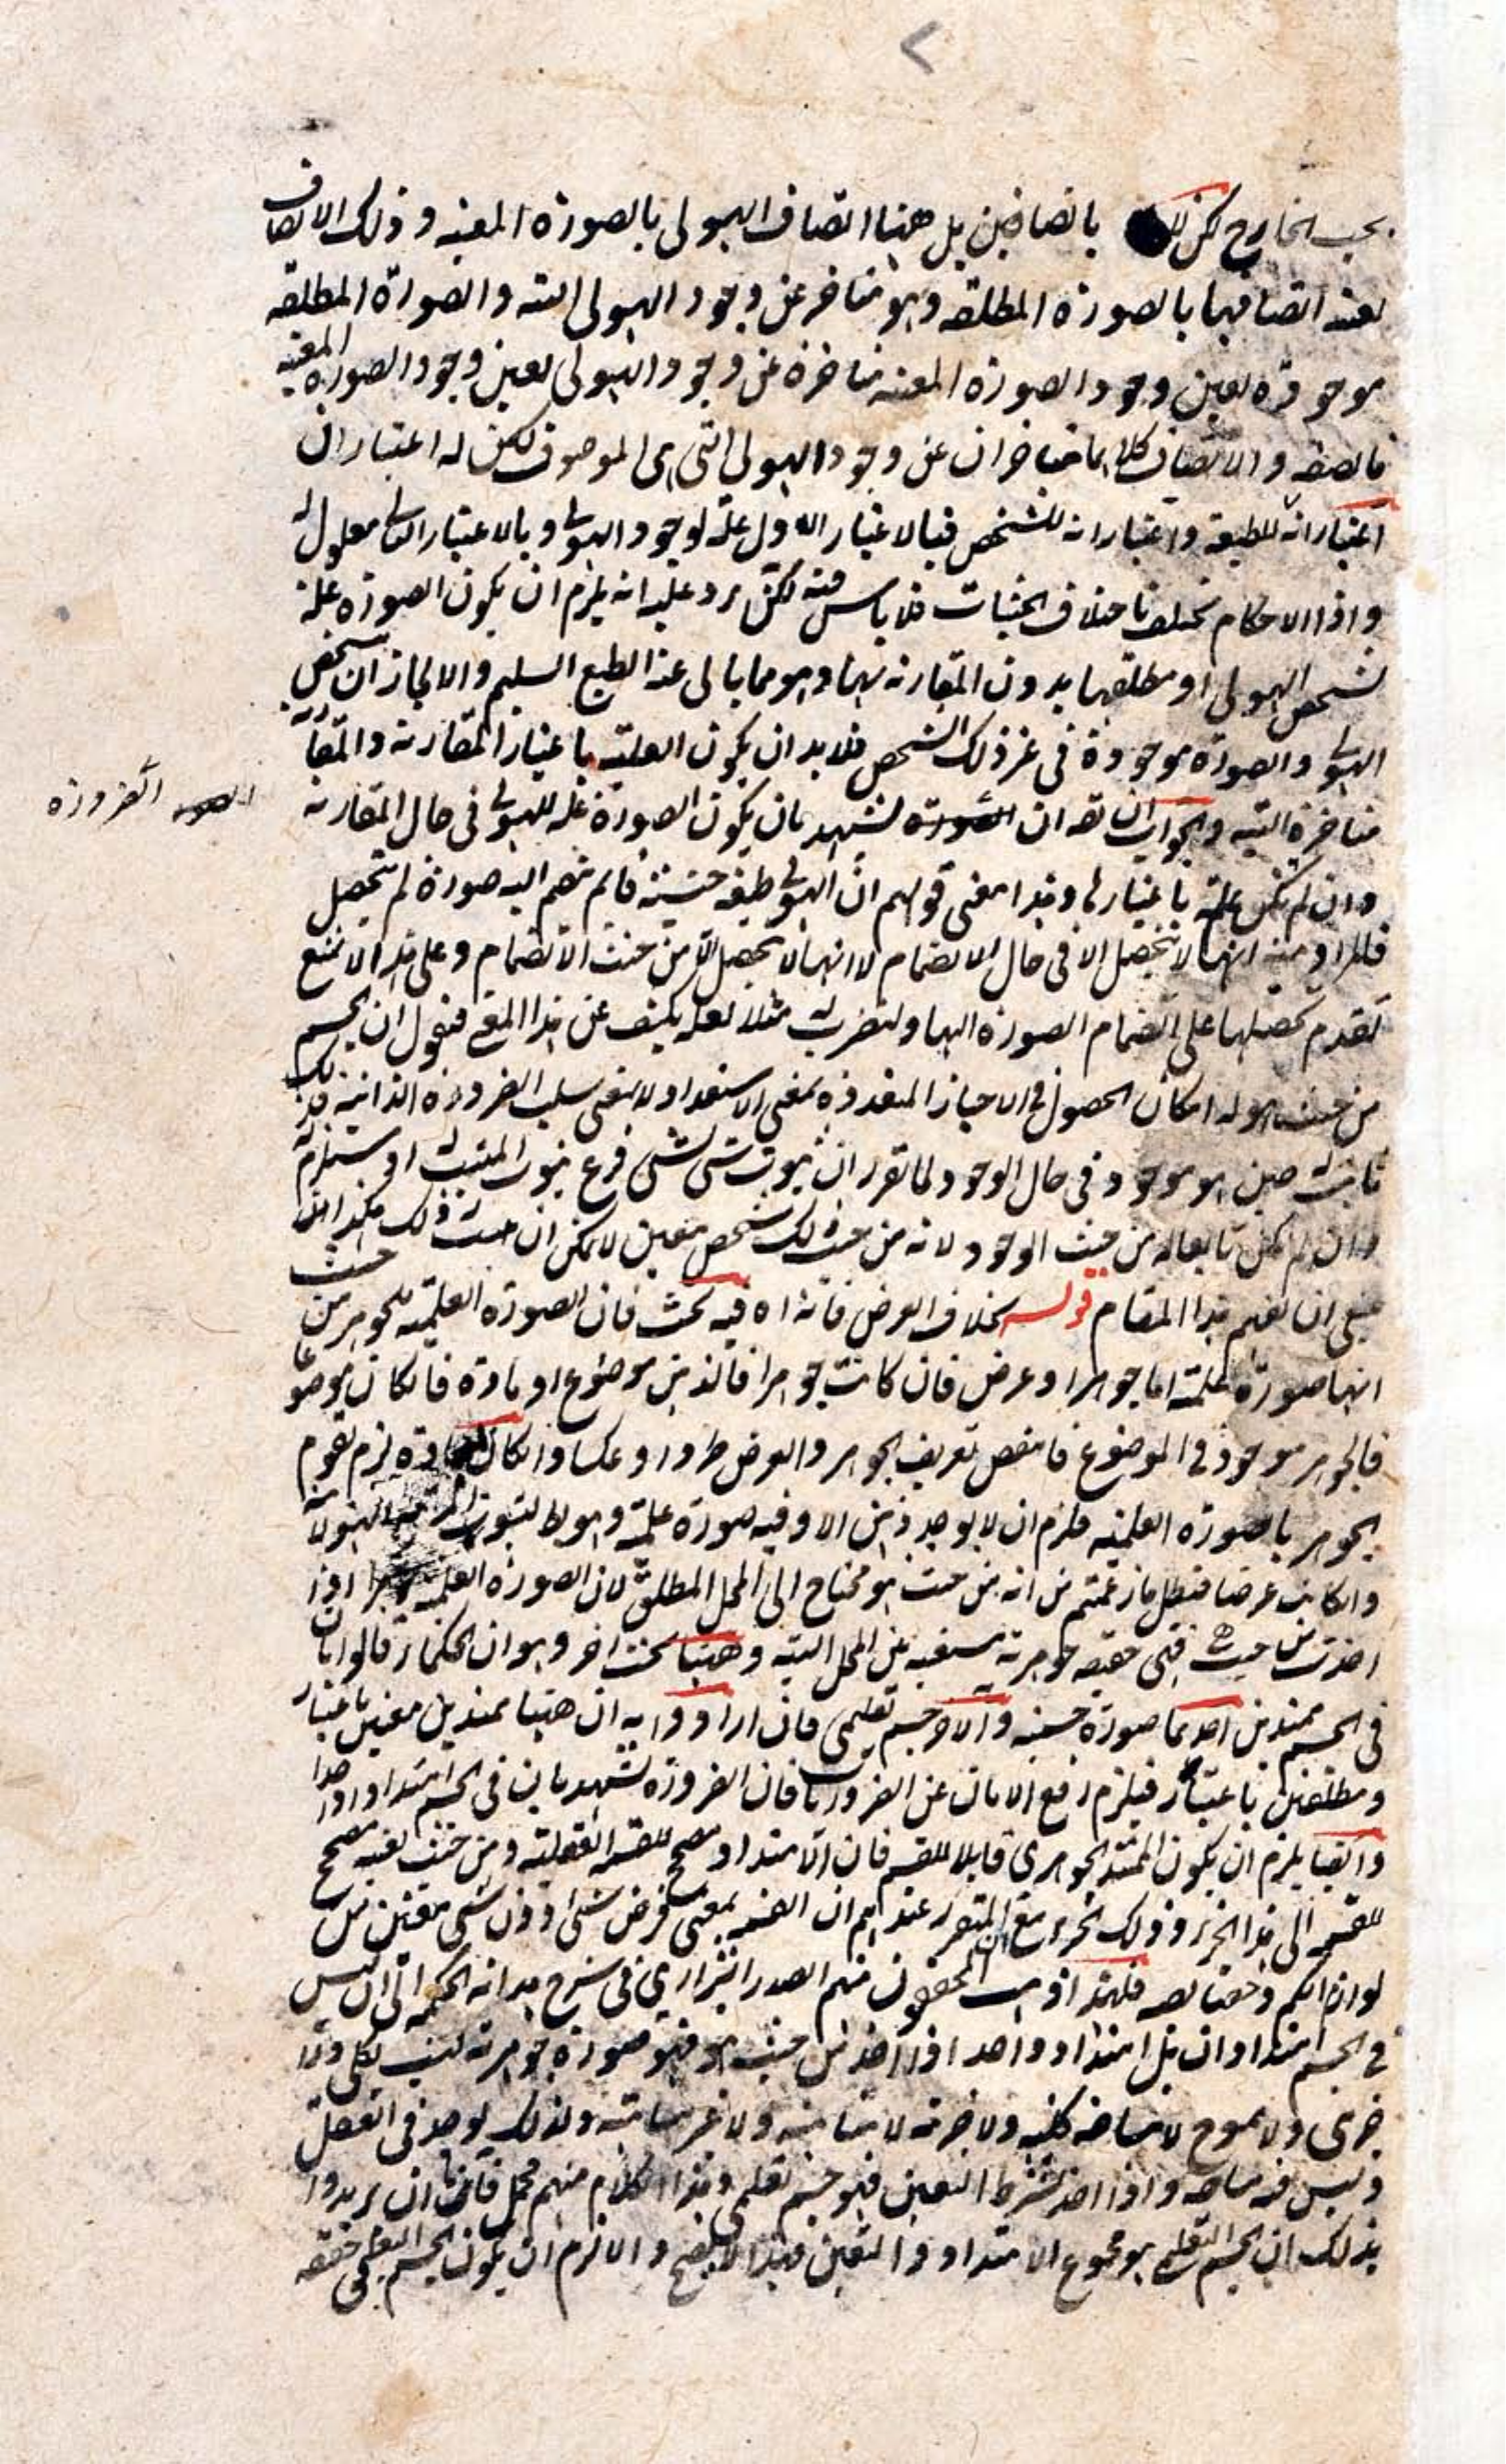 بحسب الخارج لكن ليس باتصافين بل ههنا اتصاف الهيولى بالصورة المعينة وذلك الاتصاف
بعينه اتصافها بالصورة المطلقة وهو متاخر عن وجود الهيولى البتة والصورة المطلقة
موجودة بعين وجود الصورة المعينة متاخرة عن وجود الهيولى بعين وجود الصورة المعينة
فالصفة والاتصاف كلاهما متاخران عن وجود الهيولى التى هى الموصوف لكن له اعتباران
اعتبار انه للطبيعة واعتبار انه للشخص فبالاعتبار الاول علة لوجود الهيولى وبالاعتبار الثانى معلول له
واذا الاحكام تختلف باختلاف الحيثيات فلا باس فيه لكن يرد عليه انه يلزم ان يكون الصورة علة
لشخص الهيولى او مطلقها بدون المقارنة بها وهو مما يابى عنه الطبع السليم والا لجاز ان يتشخص
الهيولى والصورة موجودة فى غير ذلك الشخص فلا بد ان يكون العلية باعتبار المقارنة والمقارنة
متاخرة البتة والجواب ان الضرورة تشهد بان يكون الصورة علة للهيولى فى حال المقارنة
الضرورة
وان لم تكن علة باعتبارها وهذا معنى قولهم ان الهيولى طبيعة جنسية فما لم تنضم اليه صورة لم تتحصل
فالمراد منه انها لا تتحصل الا فى حال الانضمام لا انها لا تحصل الا من حيث الانضمام وعلى هذا لا تمنع
تقدم تحصلها على انضمام الصورة اليها ولنضرب له مثلا لعله يكشف عن هذا المعنى فنقول ان الجسم
من حيث هو له امكان الحصول فى الاحياز المتعددة بمعنى الاستعداد لا بمعنى سلب الضرورة الذاتية فذلك
ثابت له حين هو موجود فى حال الوجود لما تقرر ان ثبوت شى لشى فرع ثبوت المثبت له او مستلزم له
وان لم يكن تابعا له من حيث الوجود لانه من حيث ذلك شخص معين لا يمكن ان حيث ذلك هكذا
ينبغى ان يفهم هذا المقام قوله بخلاف العرض فانه اه فيه بحث فان الصورة العلمية للجوهر من حيث
انها صورة علمية اما جوهر او عرض فان كانت جوهرا فالذهن موضوع او مادة فان كان موضوعا
فالجوهر موجود فى الموضوع فانتقض تعريف الجوهر والعرض طردا وعكسا وان كان مادة لزم تقوم
الجوهر بالصورة العلمية فلزم ان لا يوجد ذهن الا وفيه صورة علمية وهو بط لثبوت المرتبة الهيولانية
وان كانت عرضا فبطل ما زعمتم من انه من حيث هو محتاج الى المحل المطلق لان الصورة العلمية اذا
اخذت من حيث هى فهى حقيقة جوهرية مستغنية عن المحل البتة وههنا بحث اخر وهو ان الحكماء قالوا بان
فى الجسم ممتدين احدهما صورة جسمية والاخر جسم تعليمى فان ارادوا به ان ههنا ممتدين معينين باعتبار
ومطلقين باعتبار فيلزم رفع الامان عن الضروريات فان الضرورة تشهد بان فى الجسم امتدادا واحدا
وايضا يلزم ان يكون الممتد الجوهرى قابلا للقسمة فان الامتداد مصحح للقسمة الفعلية ومن حيث نفسه مصحح
للقسمة الى هذا الجزء وذلك الجزء مع ان المتقرر عندهم ان القسمة بمعنى فرض شى دون شى معين من
لوازم الكم وخصائصه فلهذا ذهب المحققون منهم الصدر الشيرازى فى شرح هداية الحكمة الى ان ليس
فى الجسم امتدادان بل امتداد واحد اذا اخذ من حيث هو فهو صورة جوهرية ليست بكلى ولا
جزئى ولا ممسوح لا بمساحة كلية ولا جزئية لا متناهية ولا غير متناهية ولذلك يوجد فى العقل
وليس فيه مساحة واذا اخذ بشرط التعين فهو جسم تعليمى وهذا الكلام منهم مجمل فان يريدوا
بذلك ان الجسم التعليمى هو مجموع الامتداد والتعين فهذا لا يصح والا لزم ان يكون الجسم التعليمى حقيقة